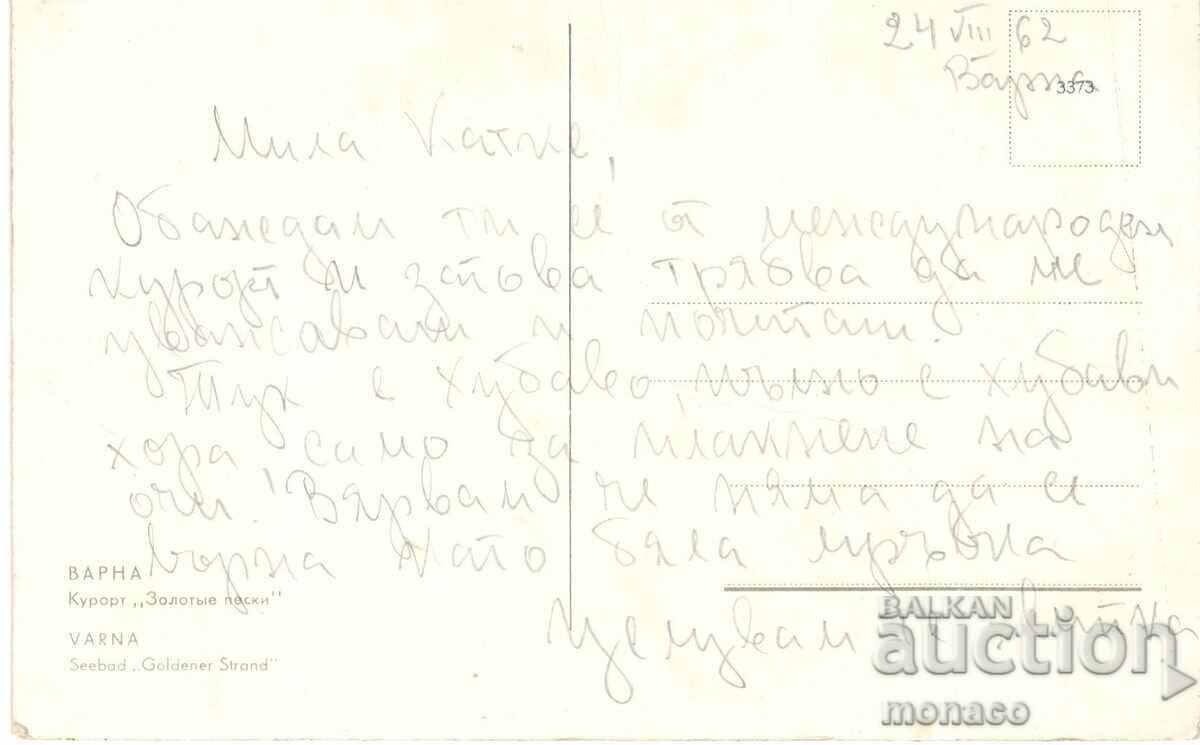 24 VIII 62
Варна
3373
Мила Катке,
Обаждам ти се от международен
курорт и затова трябва да ме
уважаваш и почиташ.
Тук е хубаво, пълно с хубави
хора само за плакнене на
очи. Вярвам че няма да се
върна като бяла врана
Целувам те
ВАРНА
Курорт „Золотые пески"
VARNA
Seebad „Goldener Strand"
BALKAN
auction
monaco